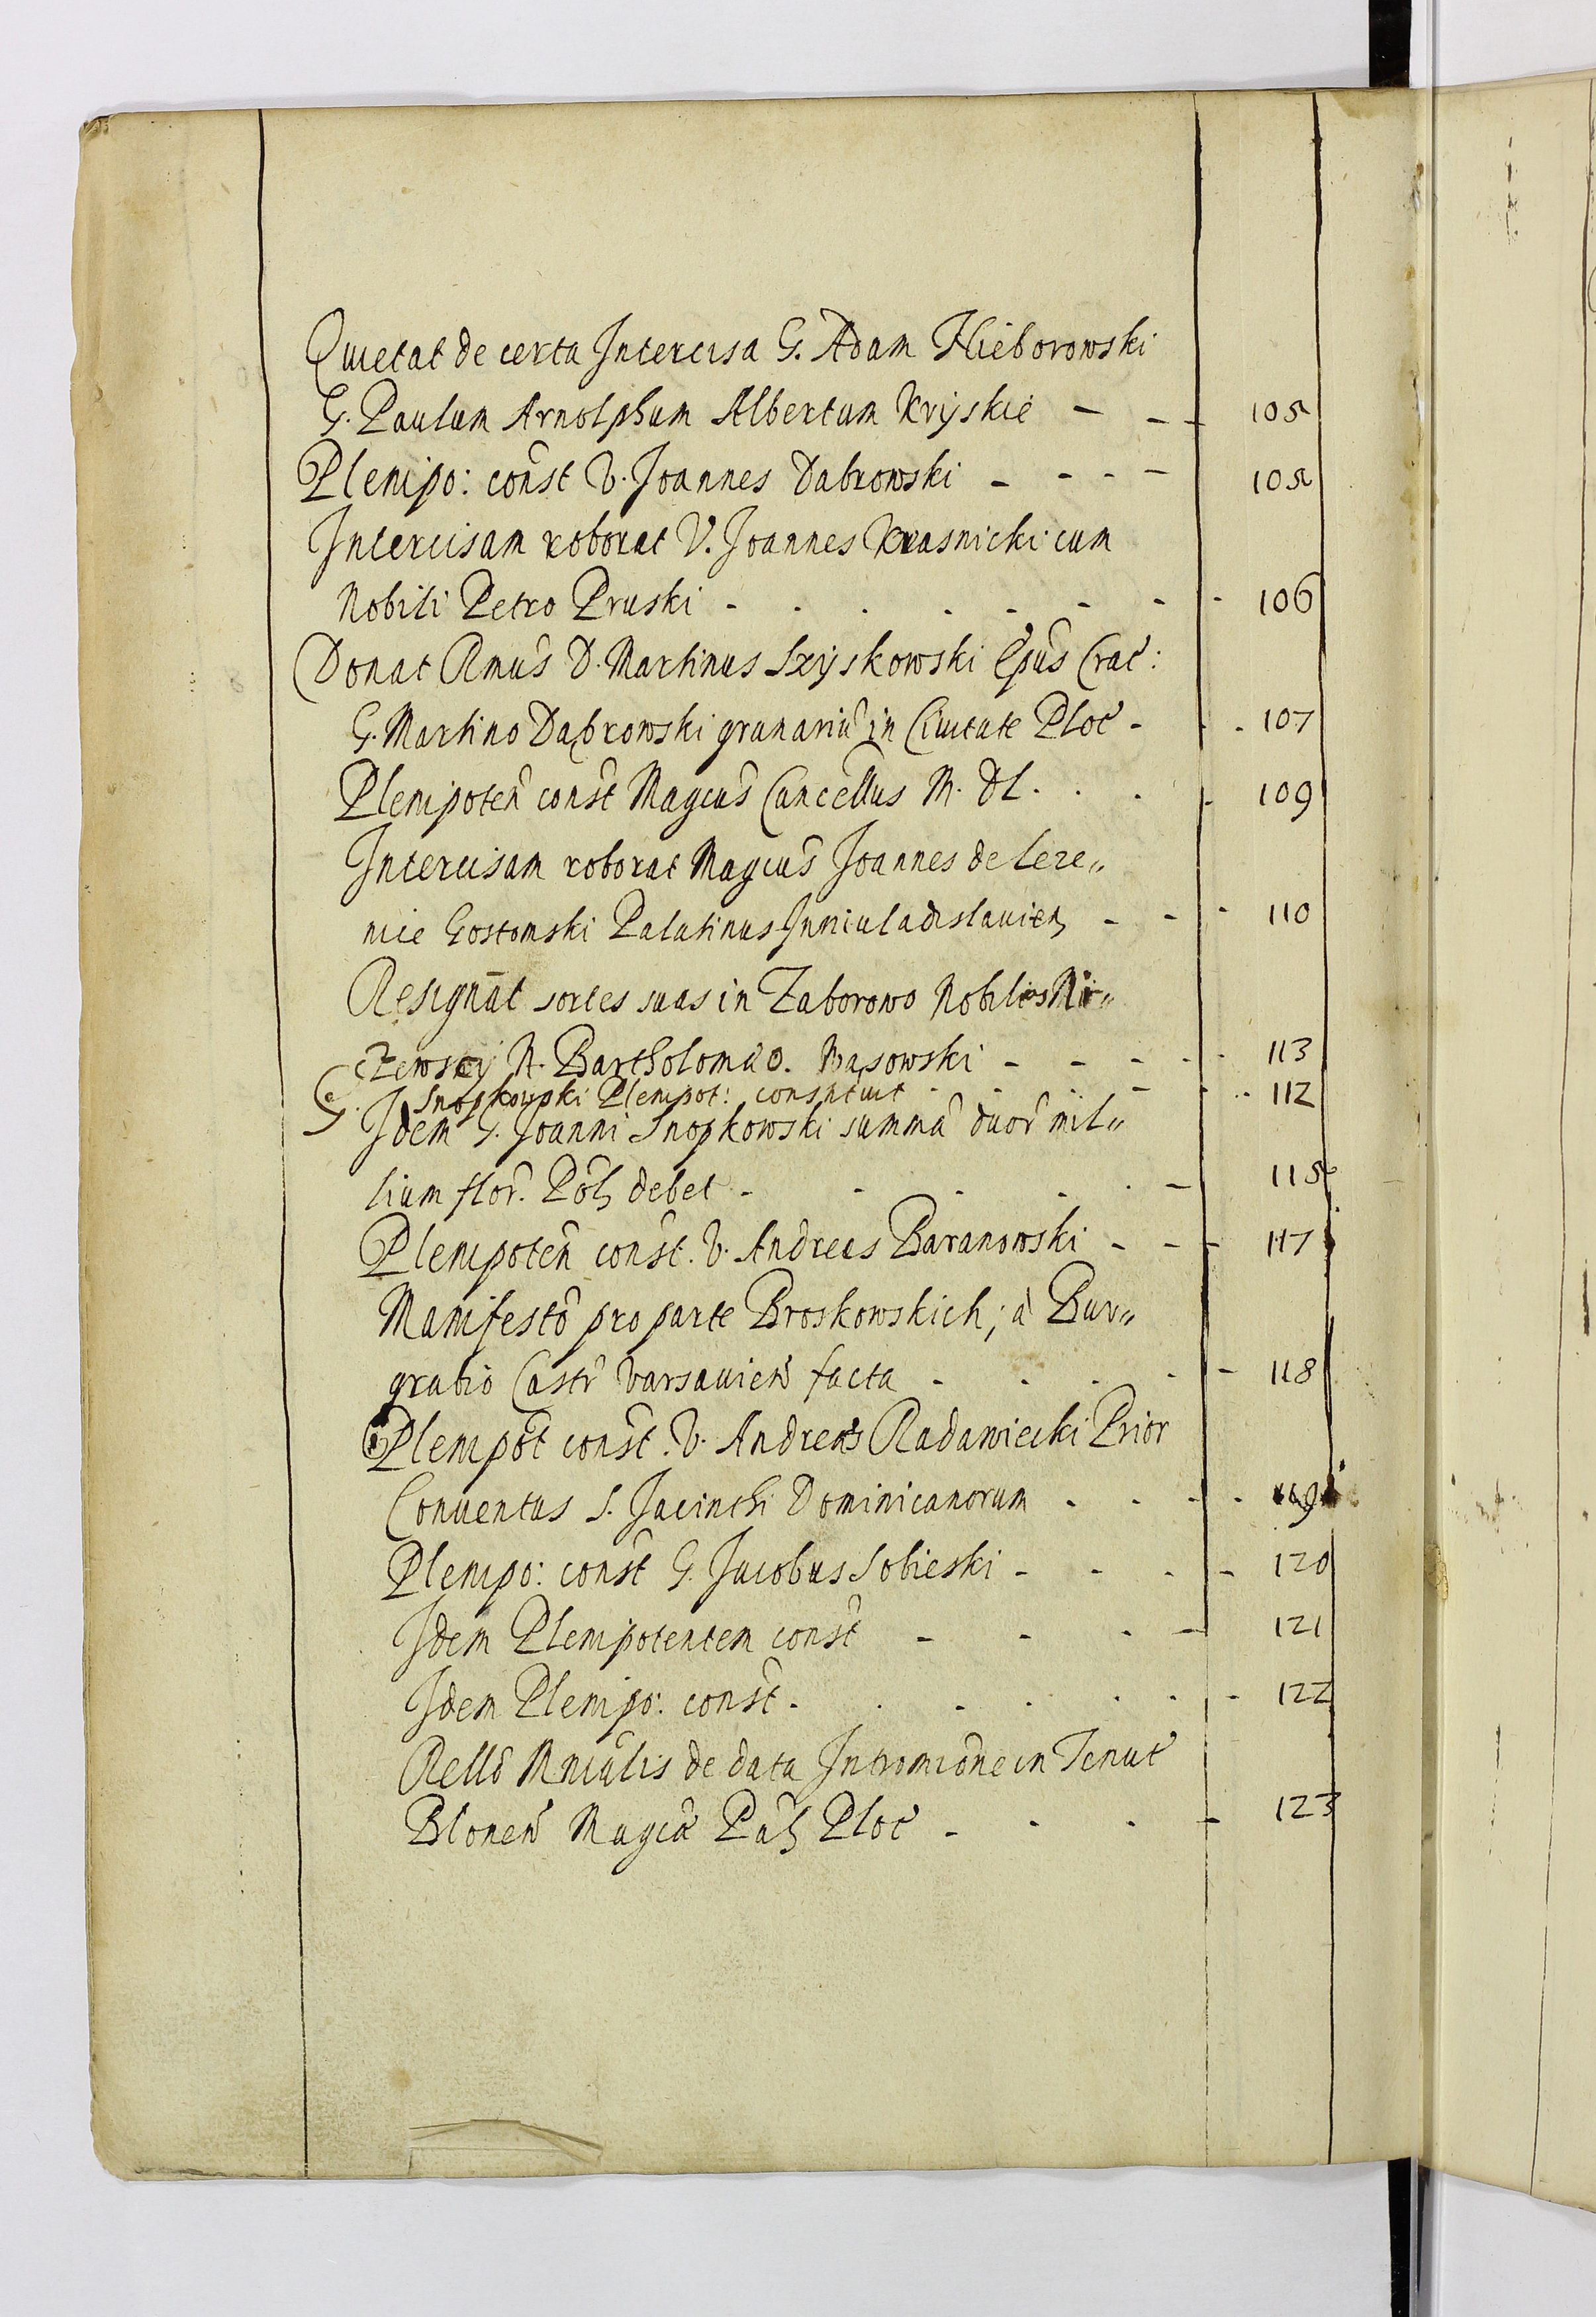 Quietat de certa Intercisa G. Adam Nieborowski
G. Paulum Arnolphum Albertum Kryskie - - - 105
Plenipo: const V. Joannes Dabrowski - - - - 105
Intercisam roborat V. Joannes Krasnicki cum
Nobili Petro Pruski - . . - - - - - 106
Donat Rmus D. Martinus Szyskowski Epus Crac:
G. Martino Dąbrowski granariũ in Ciuitate Ploc - - . 107
Plenipoten const Magcus Cancellus M. DL . . . - 109
Intercisam roborat Magcus Joannes de Leze„
nice Gostomski Palatinus Inniuladislauien - - - 110
Resignāt sortes suas in Zaborowo Nobiles Ni„
czewscy N. Bartholomęo. Wąsowski - - - - - 113
G. Snopkowski Plenipot: constituit - - - - - - .. 112
Idem G. Joanni Snopkowski summã duor mil„
lium flor. Pol debet - - - - . - 115
Plenipoten const. V. Andreas Baranowski - - - 117
Manifesto pro parte Broskowskich, à Bur„
grabio Castr Varsauien facta - - - - - 118
Plenipot const. V. Andreas Radawiecki Prior
Conuentus S. Jacinthi Dominicanorum . . - - - 119
Plenipo: const G. Jacobus Sobieski - - - - 120
Idem Plenipotentem const - - - - 121
Idem Plenipo: const - . - . . . - 122
Rello Mnialis de data Intromione in Tenut
Blonen Magci Pal Ploc - - - - 123